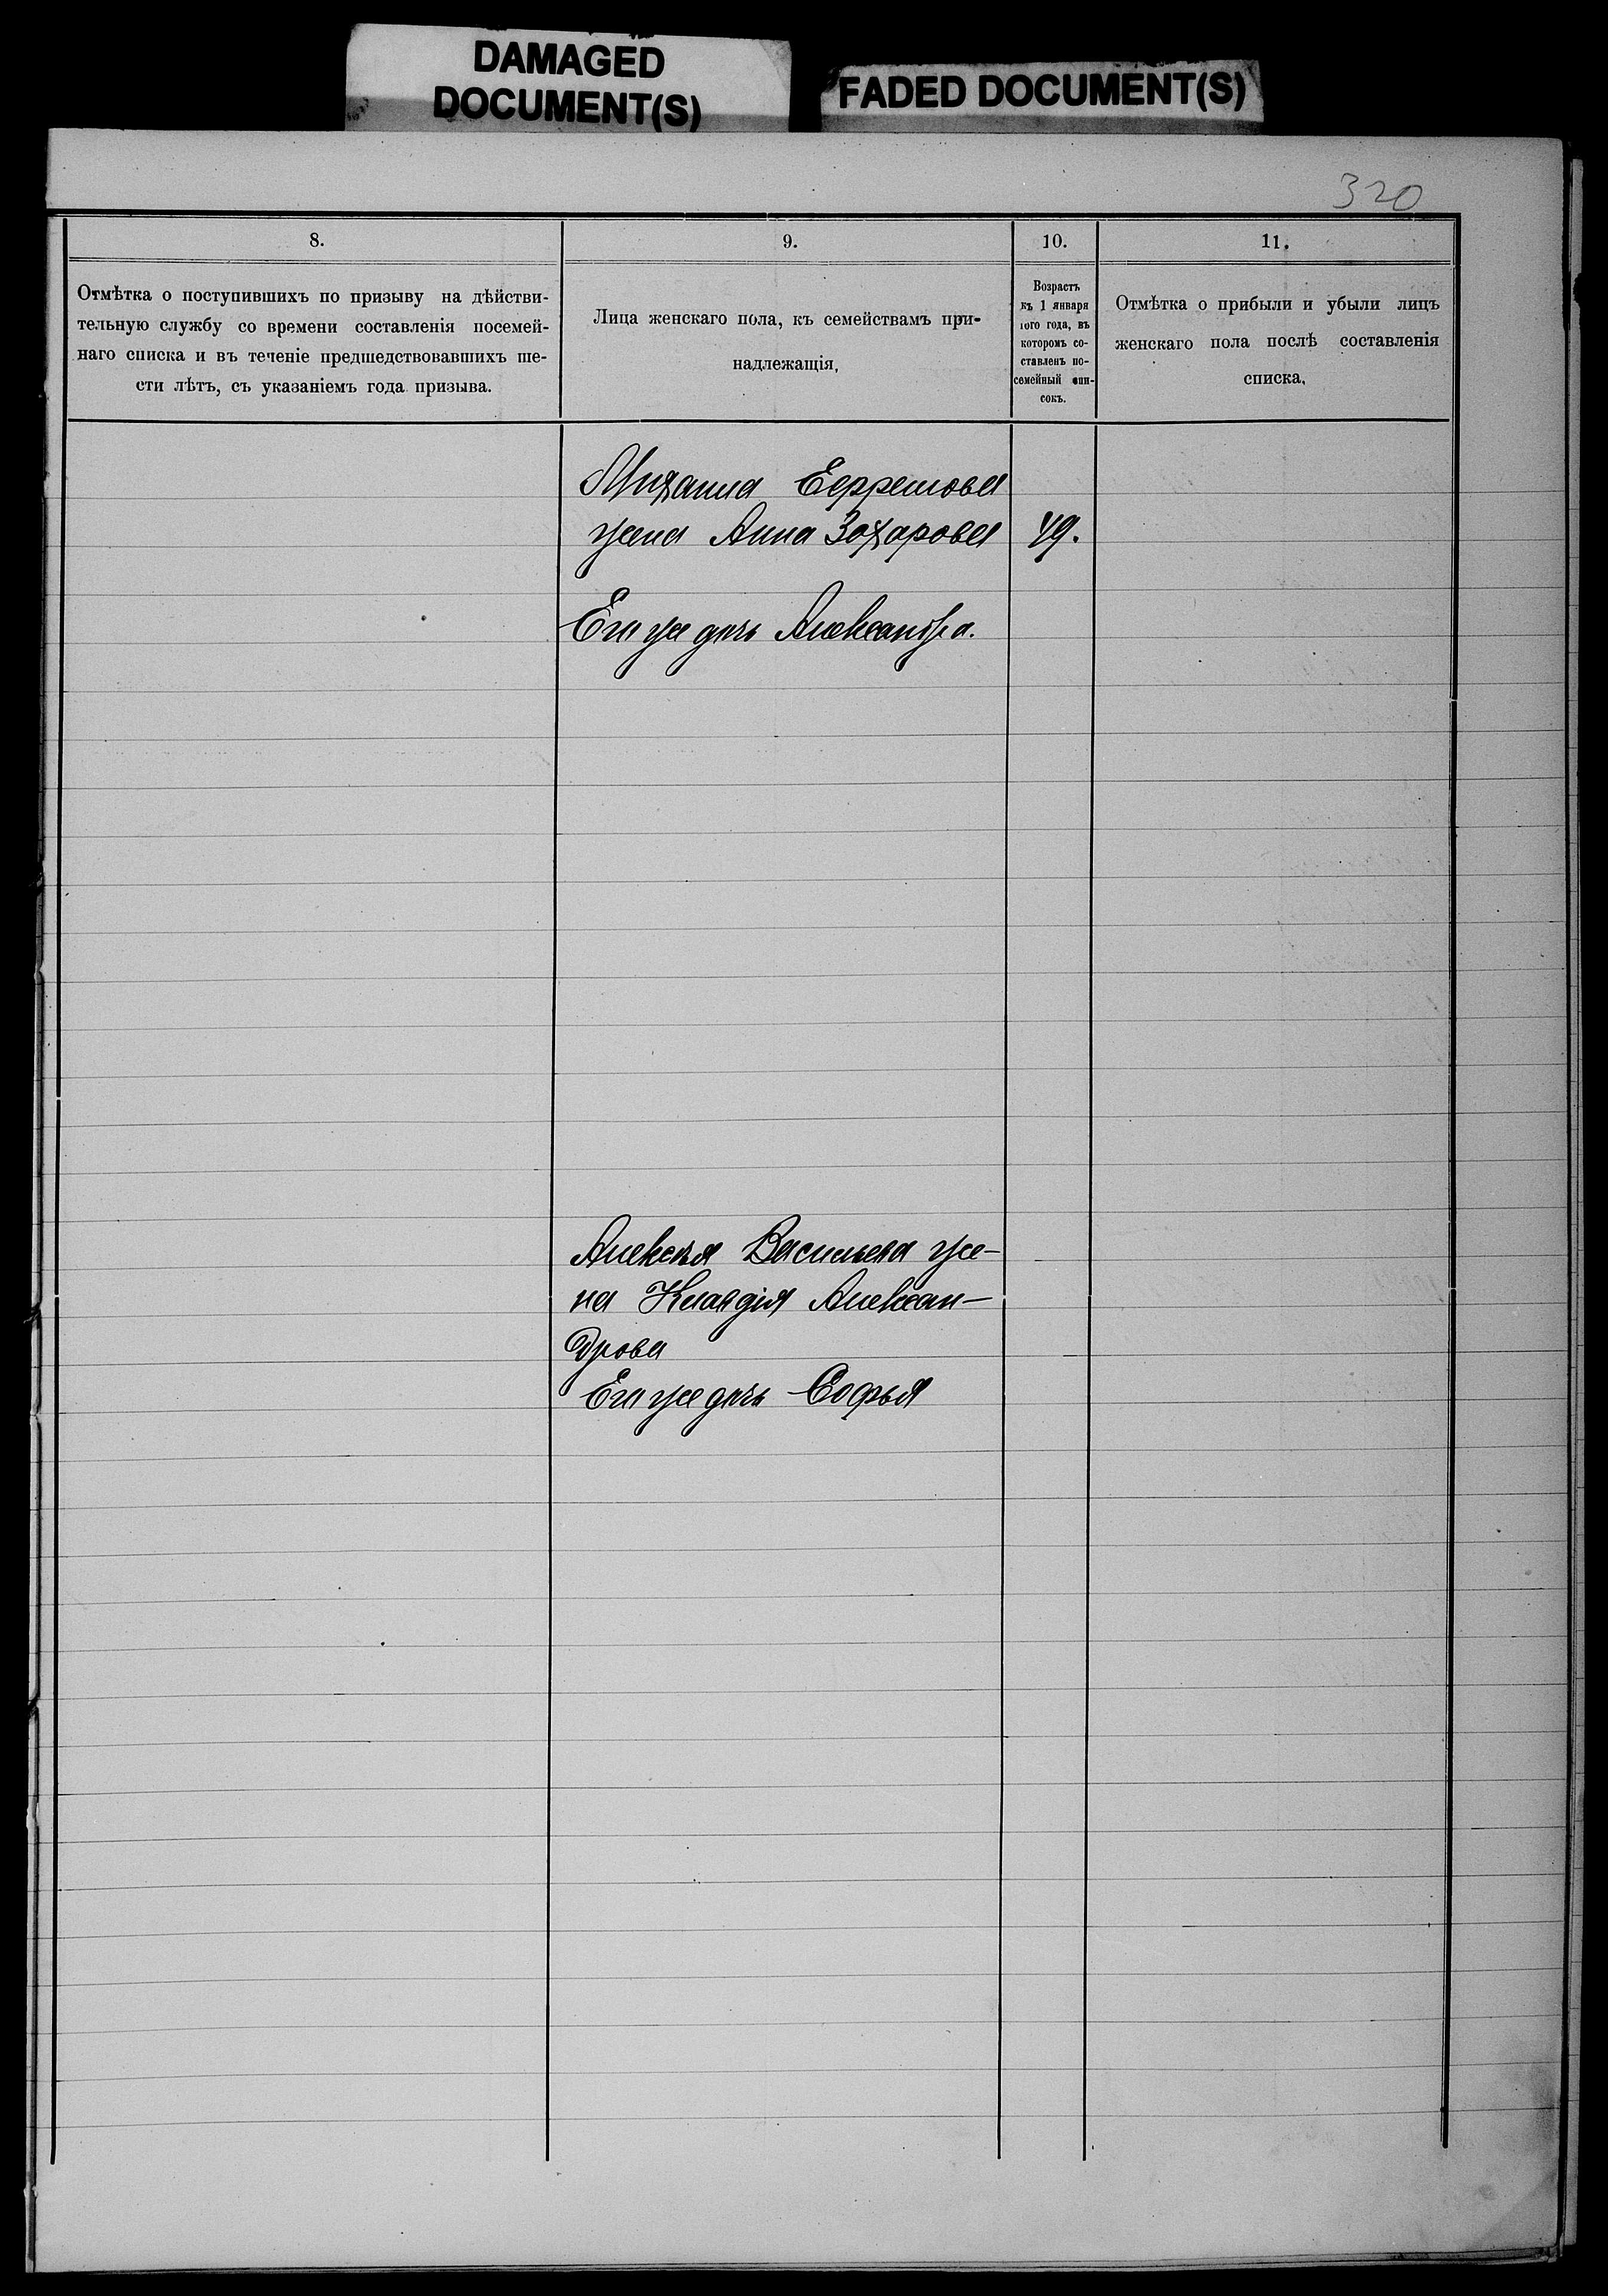 DAMAGED
DOCUMENT(S)
FADED DOCUMENT(S)
320
8.
9.
10.
11.
Отмѣтка о поступившихъ по призыву на дѣйстви-
тельную службу со времени составленія посемей-
наго списка и въ теченіе предшедствовавшихъ ше-
сти лѣтъ, съ указаніемъ года призыва.
Лица женскаго пола, къ семействамъ при-
надлежащія,
Возрастъ
къ 1 января
того года, въ
которомъ со-
ставленъ по-
семейный спи-
сокъ.
Отмѣтка о прибыли и убыли лицъ
женскаго пола послѣ составленія
списка,
Михаила Ефремова
жена Анна Захарова 49.
Его же дочь Александра.
Алексѣя Васильева же-
на Клавдія Алексан-
дрова
Его же дочь Софья